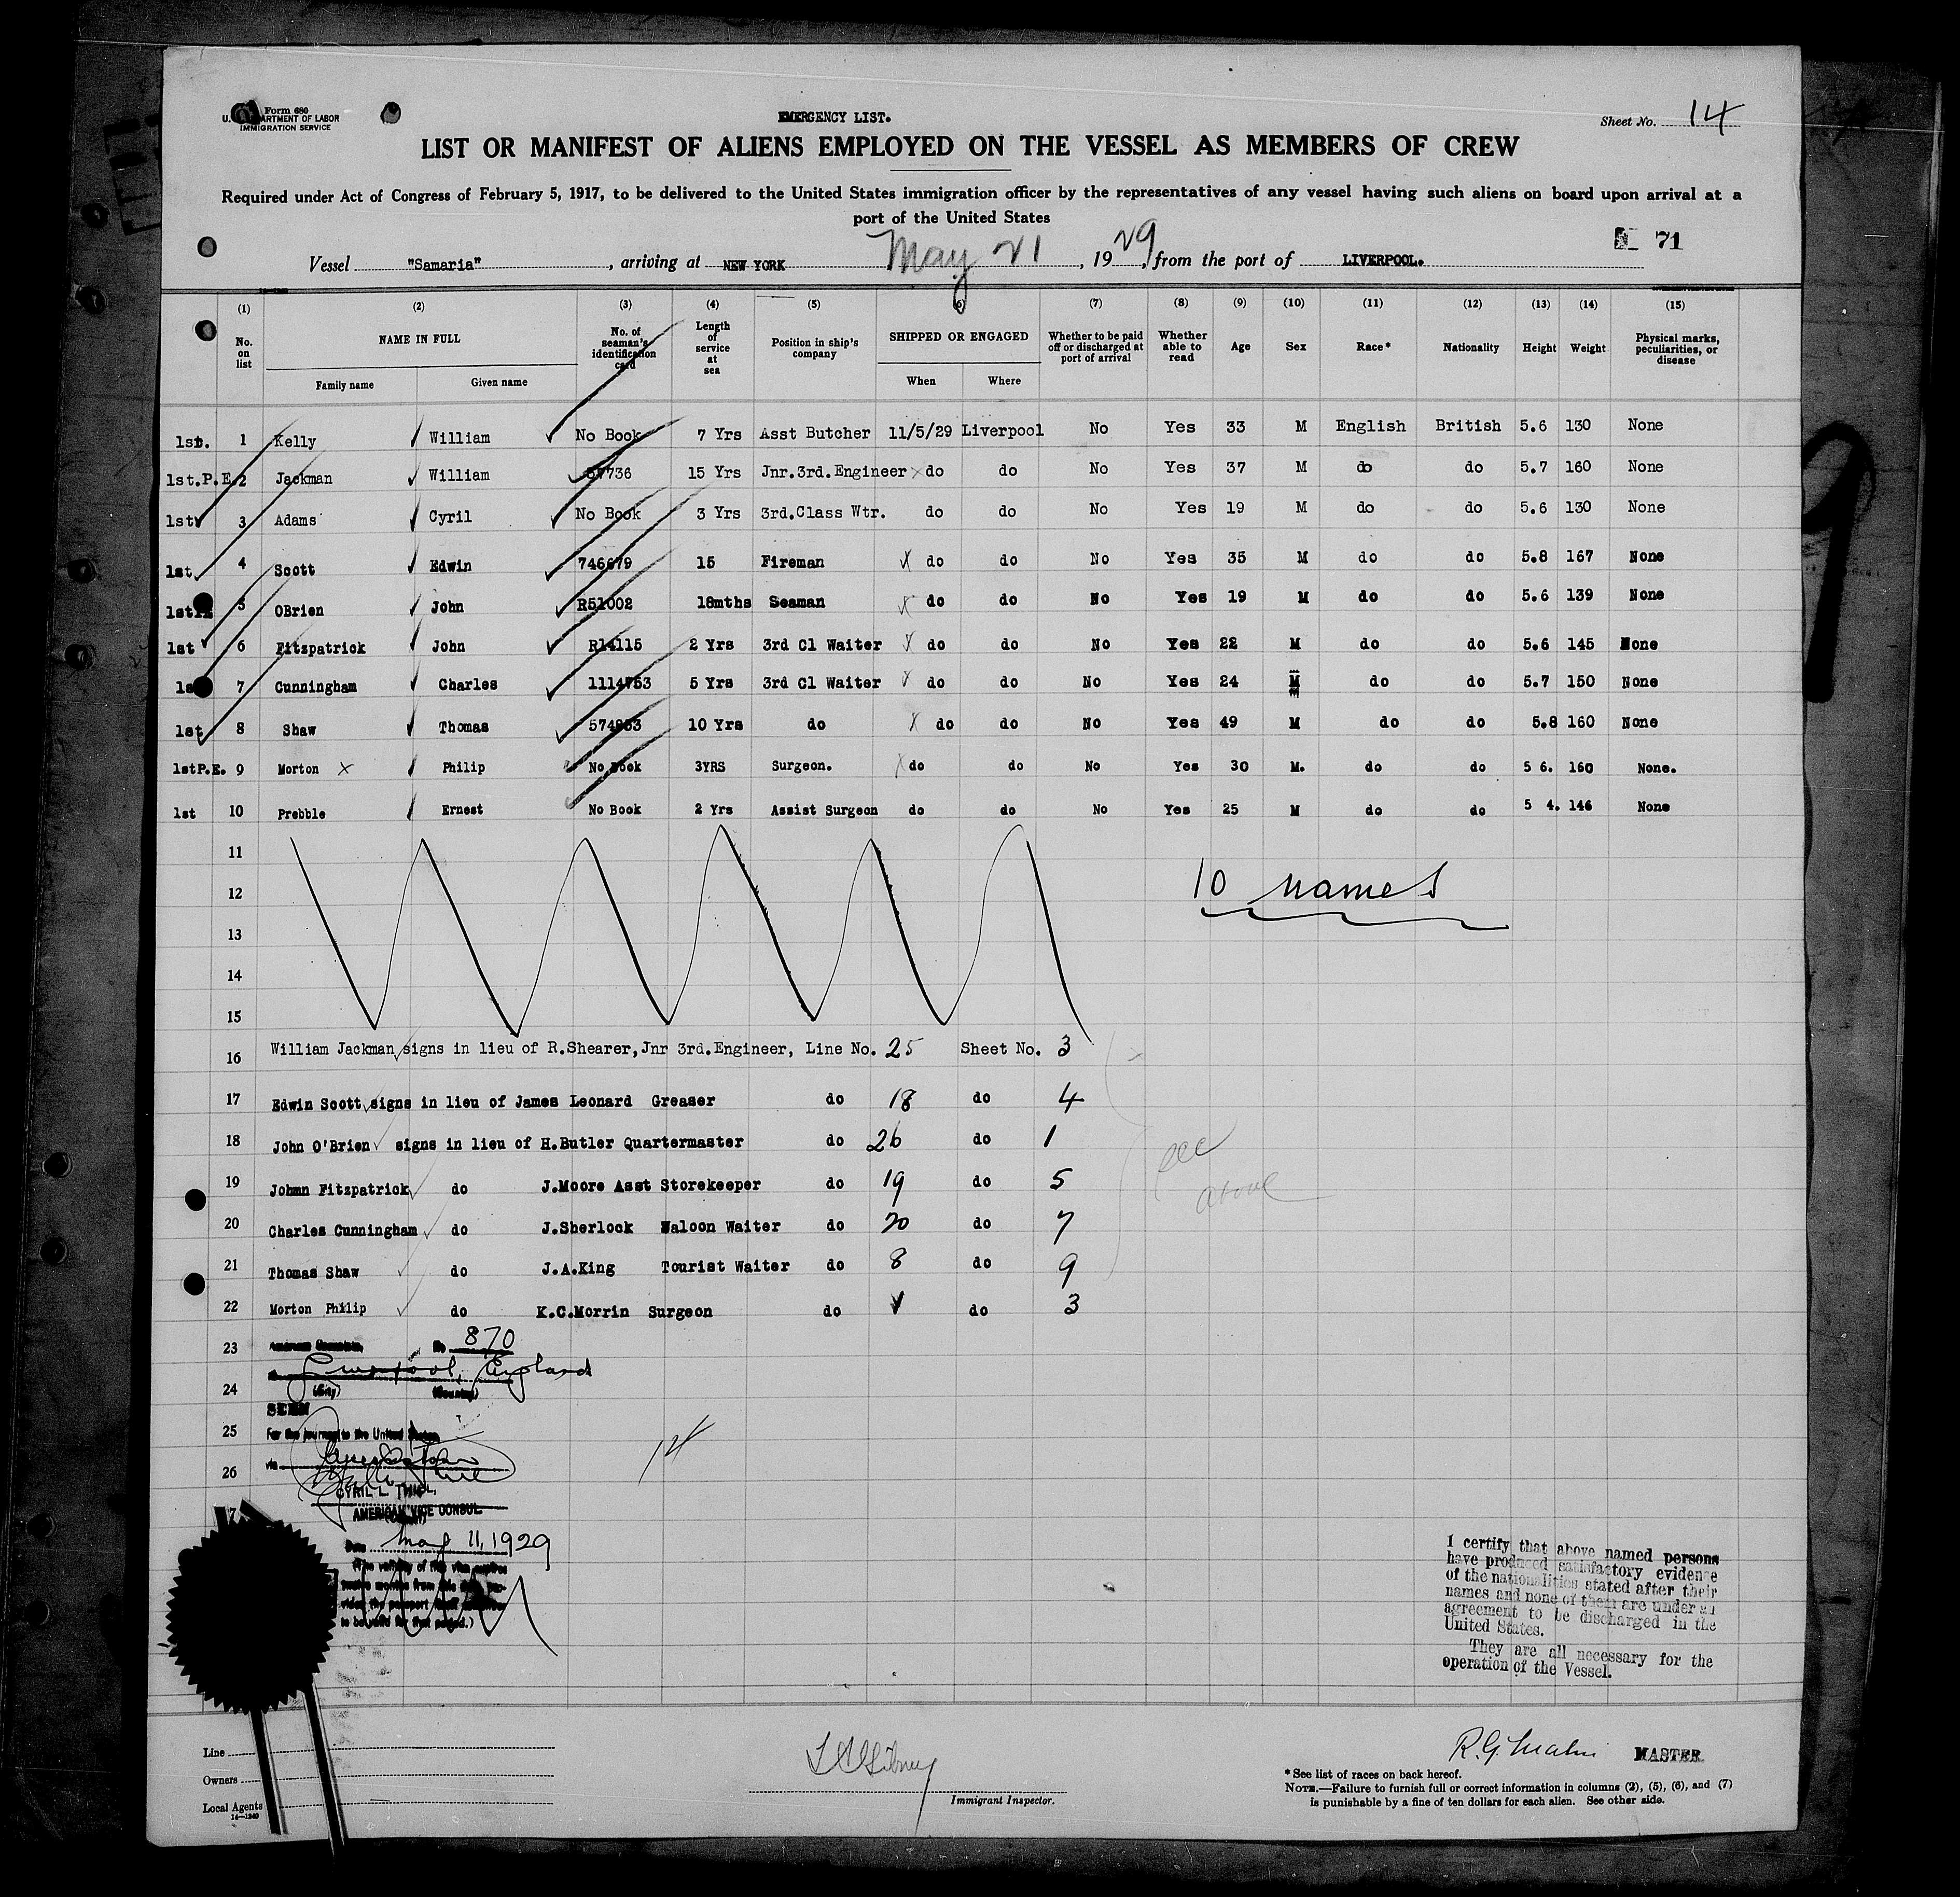 Form 680
U. DEPARTMENT OF LABOR
IMMIGRATION SERVICE
EMERGENCY LIST.
Sheet No. 14
LIST OR MANIFEST OF ALIENS EMPLOYED ON THE VESSEL AS MEMBERS OF CREW
Required under Act of Congress of February 5, 1917, to be delivered to the United States immigration officer by the representatives of any vessel having such aliens on board upon arrival at a
port of the United States
71
Vessel "Samaria", arriving at NEW YORK May 21, 1929, from the port of LIVERPOOL.
(1) (2) (3) (4) (5) (6) (7) (8) (9) (10) (11) (12) (13) (14) (15)
No. on list NAME IN FULL Family name Given name No. of seaman's identification card Length of service at sea Position in ship's company SHIPPED OR ENGAGED When Where Whether to be paid off or discharged at port of arrival Whether able to read Age Sex Race* Nationality Height Weight Physical marks, peculiarities, or disease
1st. 1 Kelly William No Book 7 Yrs Asst Butcher 11/5/29 Liverpool No Yes 33 M English British 5.6 130 None
1st.P.E. 2 Jackman William 57736 15 Yrs Jnr.3rd.Engineer do do No Yes 37 M do do 5.7 160 None
1st 3 Adams Cyril No Book 3 Yrs 3rd.Class Wtr. do do No Yes 19 M do do 5.6 130 None
1st 4 Scott Edwin 746679 15 Fireman do do No Yes 35 M do do 5.8 167 None
1st 5 OBrien John R51002 18mths Seaman do do No Yes 19 M do do 5.6 139 None
1st 6 Fitzpatrick John R14115 2 Yrs 3rd Cl Waiter do do No Yes 22 M do do 5.6 145 None
1s 7 Cunningham Charles 1114753 5 Yrs 3rd Cl Waiter do do No Yes 24 M do do 5.7 150 None
1st 8 Shaw Thomas 574 10 Yrs do do do No Yes 49 M do do 5.8 160 None
1stP.E. 9 Morton X Philip No Book 3YRS Surgeon. do do No Yes 30 M. do do 5 6. 160 None.
1st 10 Prebble Ernest No Book 2 Yrs Assist Surgeon do do No Yes 25 M do do 5 4. 146 None
11
12 10 names
13
14
15
16 William Jackman signs in lieu of R.Shearer,Jnr 3rd.Engineer, Line No. 25 Sheet No. 3
17 Edwin Scott signs in lieu of James Leonard Greaser do 18 do 4
18 John O'Brien signs in lieu of H.Butler Quartermaster do 26 do 1
19 Johmn Fitzpatrick do J.Moore Asst Storekeeper do 19 do 5
see above
20 Charles Cunningham do J.Sherlock Saloon Waiter do 20 do 7
21 Thomas Shaw do J.A.King Tourist Waiter do 8 do 9
22 Morton Philip do K.C.Morrin Surgeon do 1 do 3
23 No 870
Liverpool, England
24 (City) (Country)
SEEN
25 For the journey to the United States
14
26 via
CYRIL L. THIEL,
AMERICAN VICE CONSUL.
Date May 11, 1929
(The validity of this visa expires
twelve months from this date pro-
vided the passport
to be valid for that period.)
I certify that above named persons
have produced satisfactory evidence
of the nationalities stated after their
names and none of them are under an
agreement to be discharged in the
United States.
They are all necessary for the
operation of the Vessel.
Line
Owners
Local Agents
14-1240
Immigrant Inspector.
MASTER
*See list of races on back hereof.
NOTE.—Failure to furnish full or correct information in columns (2), (5), (6), and (7)
is punishable by a fine of ten dollars for each alien. See other side.